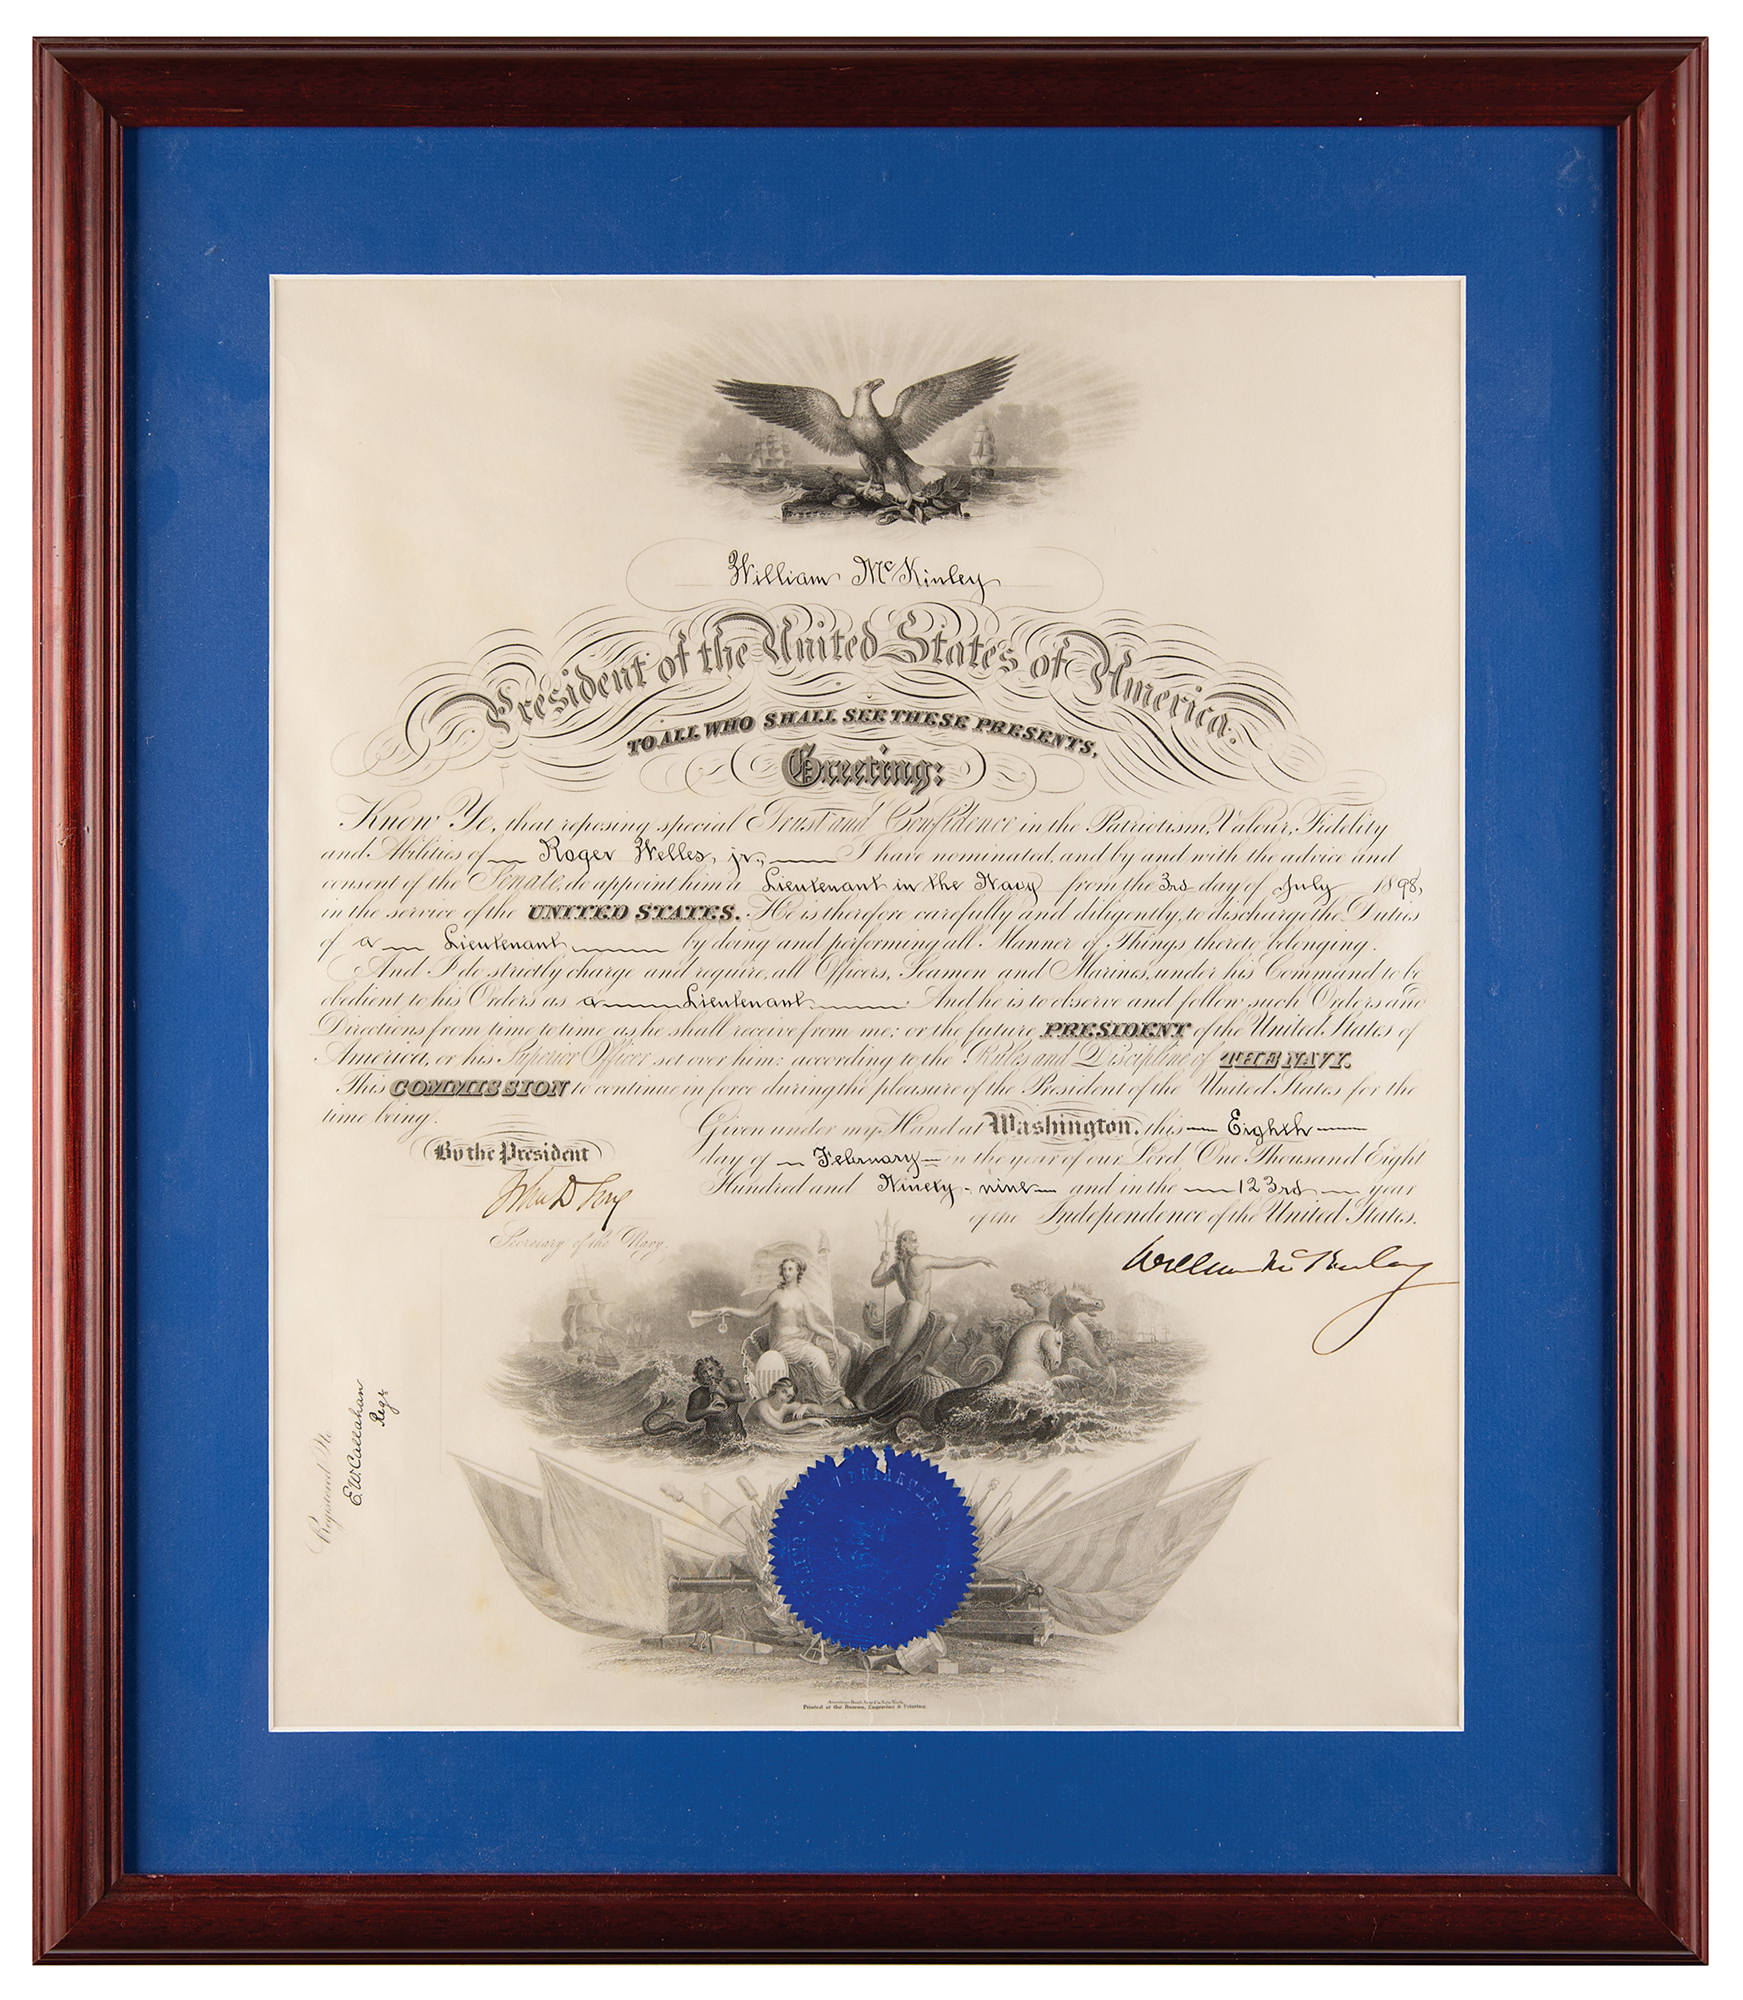 William McKinley
President of the United States of America.
TO ALL WHO SHALL SEE THESE PRESENTS,
Greeting:
Know Ye, that reposing special Trust and Confidence in the Patriotism, Valour, Fidelity
and Abilities of Roger Welles, jr., I have nominated, and by and with the advice and
consent of the Senate, do appoint him a Lieutenant in the Navy from the 3rd day of July 1898,
in the service of the UNITED STATES. He is therefore carefully and diligently, to discharge the Duties
of a Lieutenant by doing and performing all Manner of Things thereto belonging.
And I do strictly charge and require, all Officers, Seamen and Marines, under his Command to be
obedient to his Orders as a Lieutenant. And he is to observe and follow such Orders and
Directions from time to time as he shall receive from me; or the future PRESIDENT of the United States of
America, or his Superior Officer set over him: according to the Rules and Discipline of THE NAVY.
This COMMISSION to continue in force during the pleasure of the President of the United States for the
time being.
Given under my Hand at Washington, this Eighth
day of February in the year of our Lord One Thousand Eight
Hundred and Ninety-nine and in the 123rd year
of the Independence of the United States.
By the President
John D Long
Secretary of the Navy.
William McKinley
Registered No
E.W. Callahan
Regr
American Bank Note Co. New York.
Printed at the Bureau, Engraving & Printing.